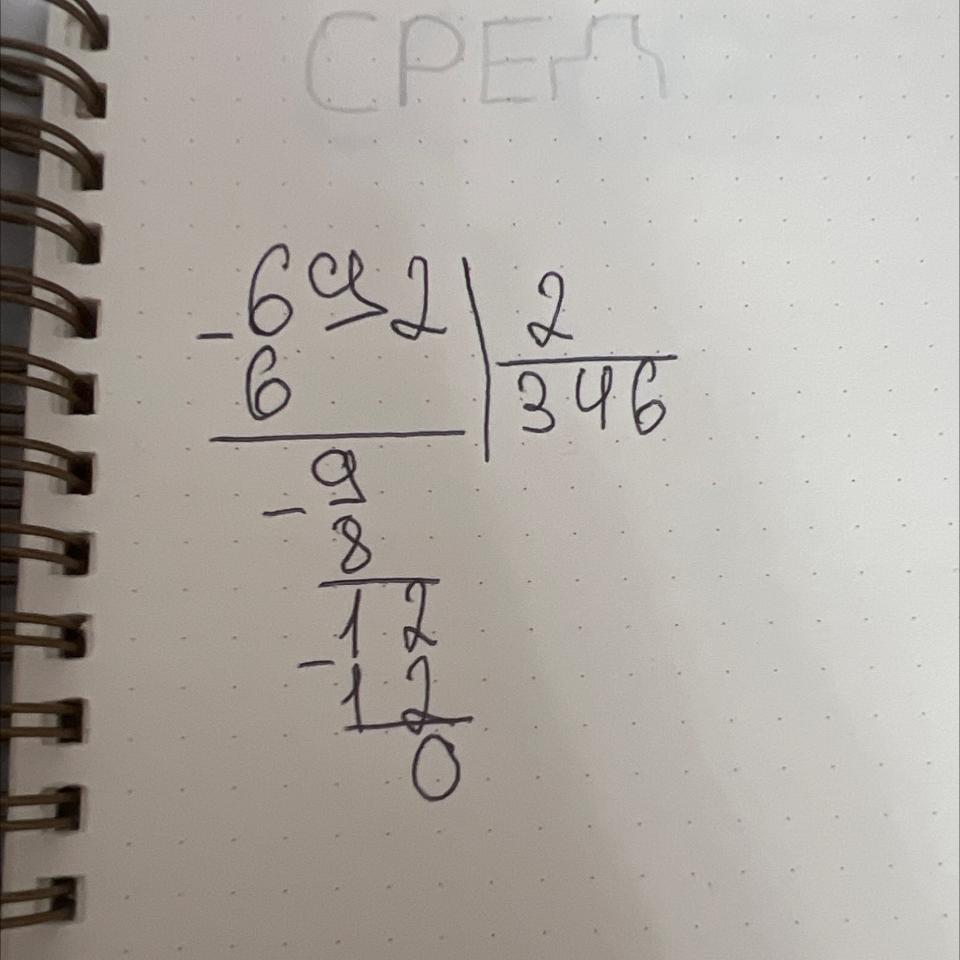 СРЕД
- 692 | 2
6 346
- 9
8
12
- 12
0